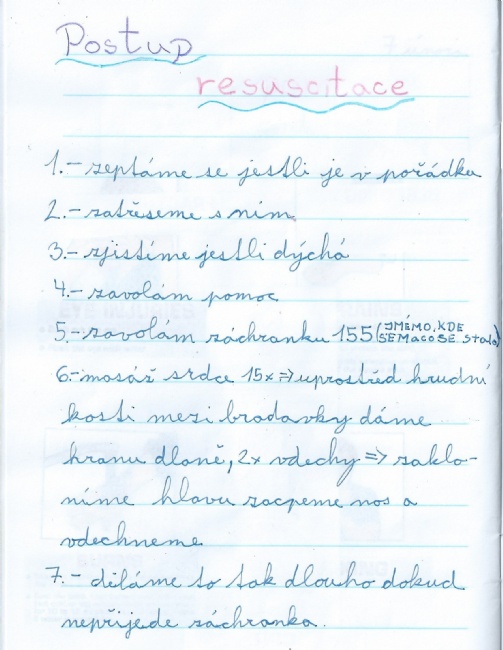 Postup
resuscitace
1.- zeptáme se jestli je v pořádku
2.- zatřeseme s ním
3.- zjistíme jestli dýchá
4.- zavolám pomoc
5.- zavolám záchranku 155 (JMÉMO, KDE
SEM a co SE stalo)
6.- masáž srdce 15x => uprostřed hrudní
kosti mezi bradavky dáme
hranu dlaně, 2x vdechy => zaklo-
níme hlavu zacpeme nos a
vdechneme
7.- děláme to tak dlouho dokud
nepřijede záchranka.